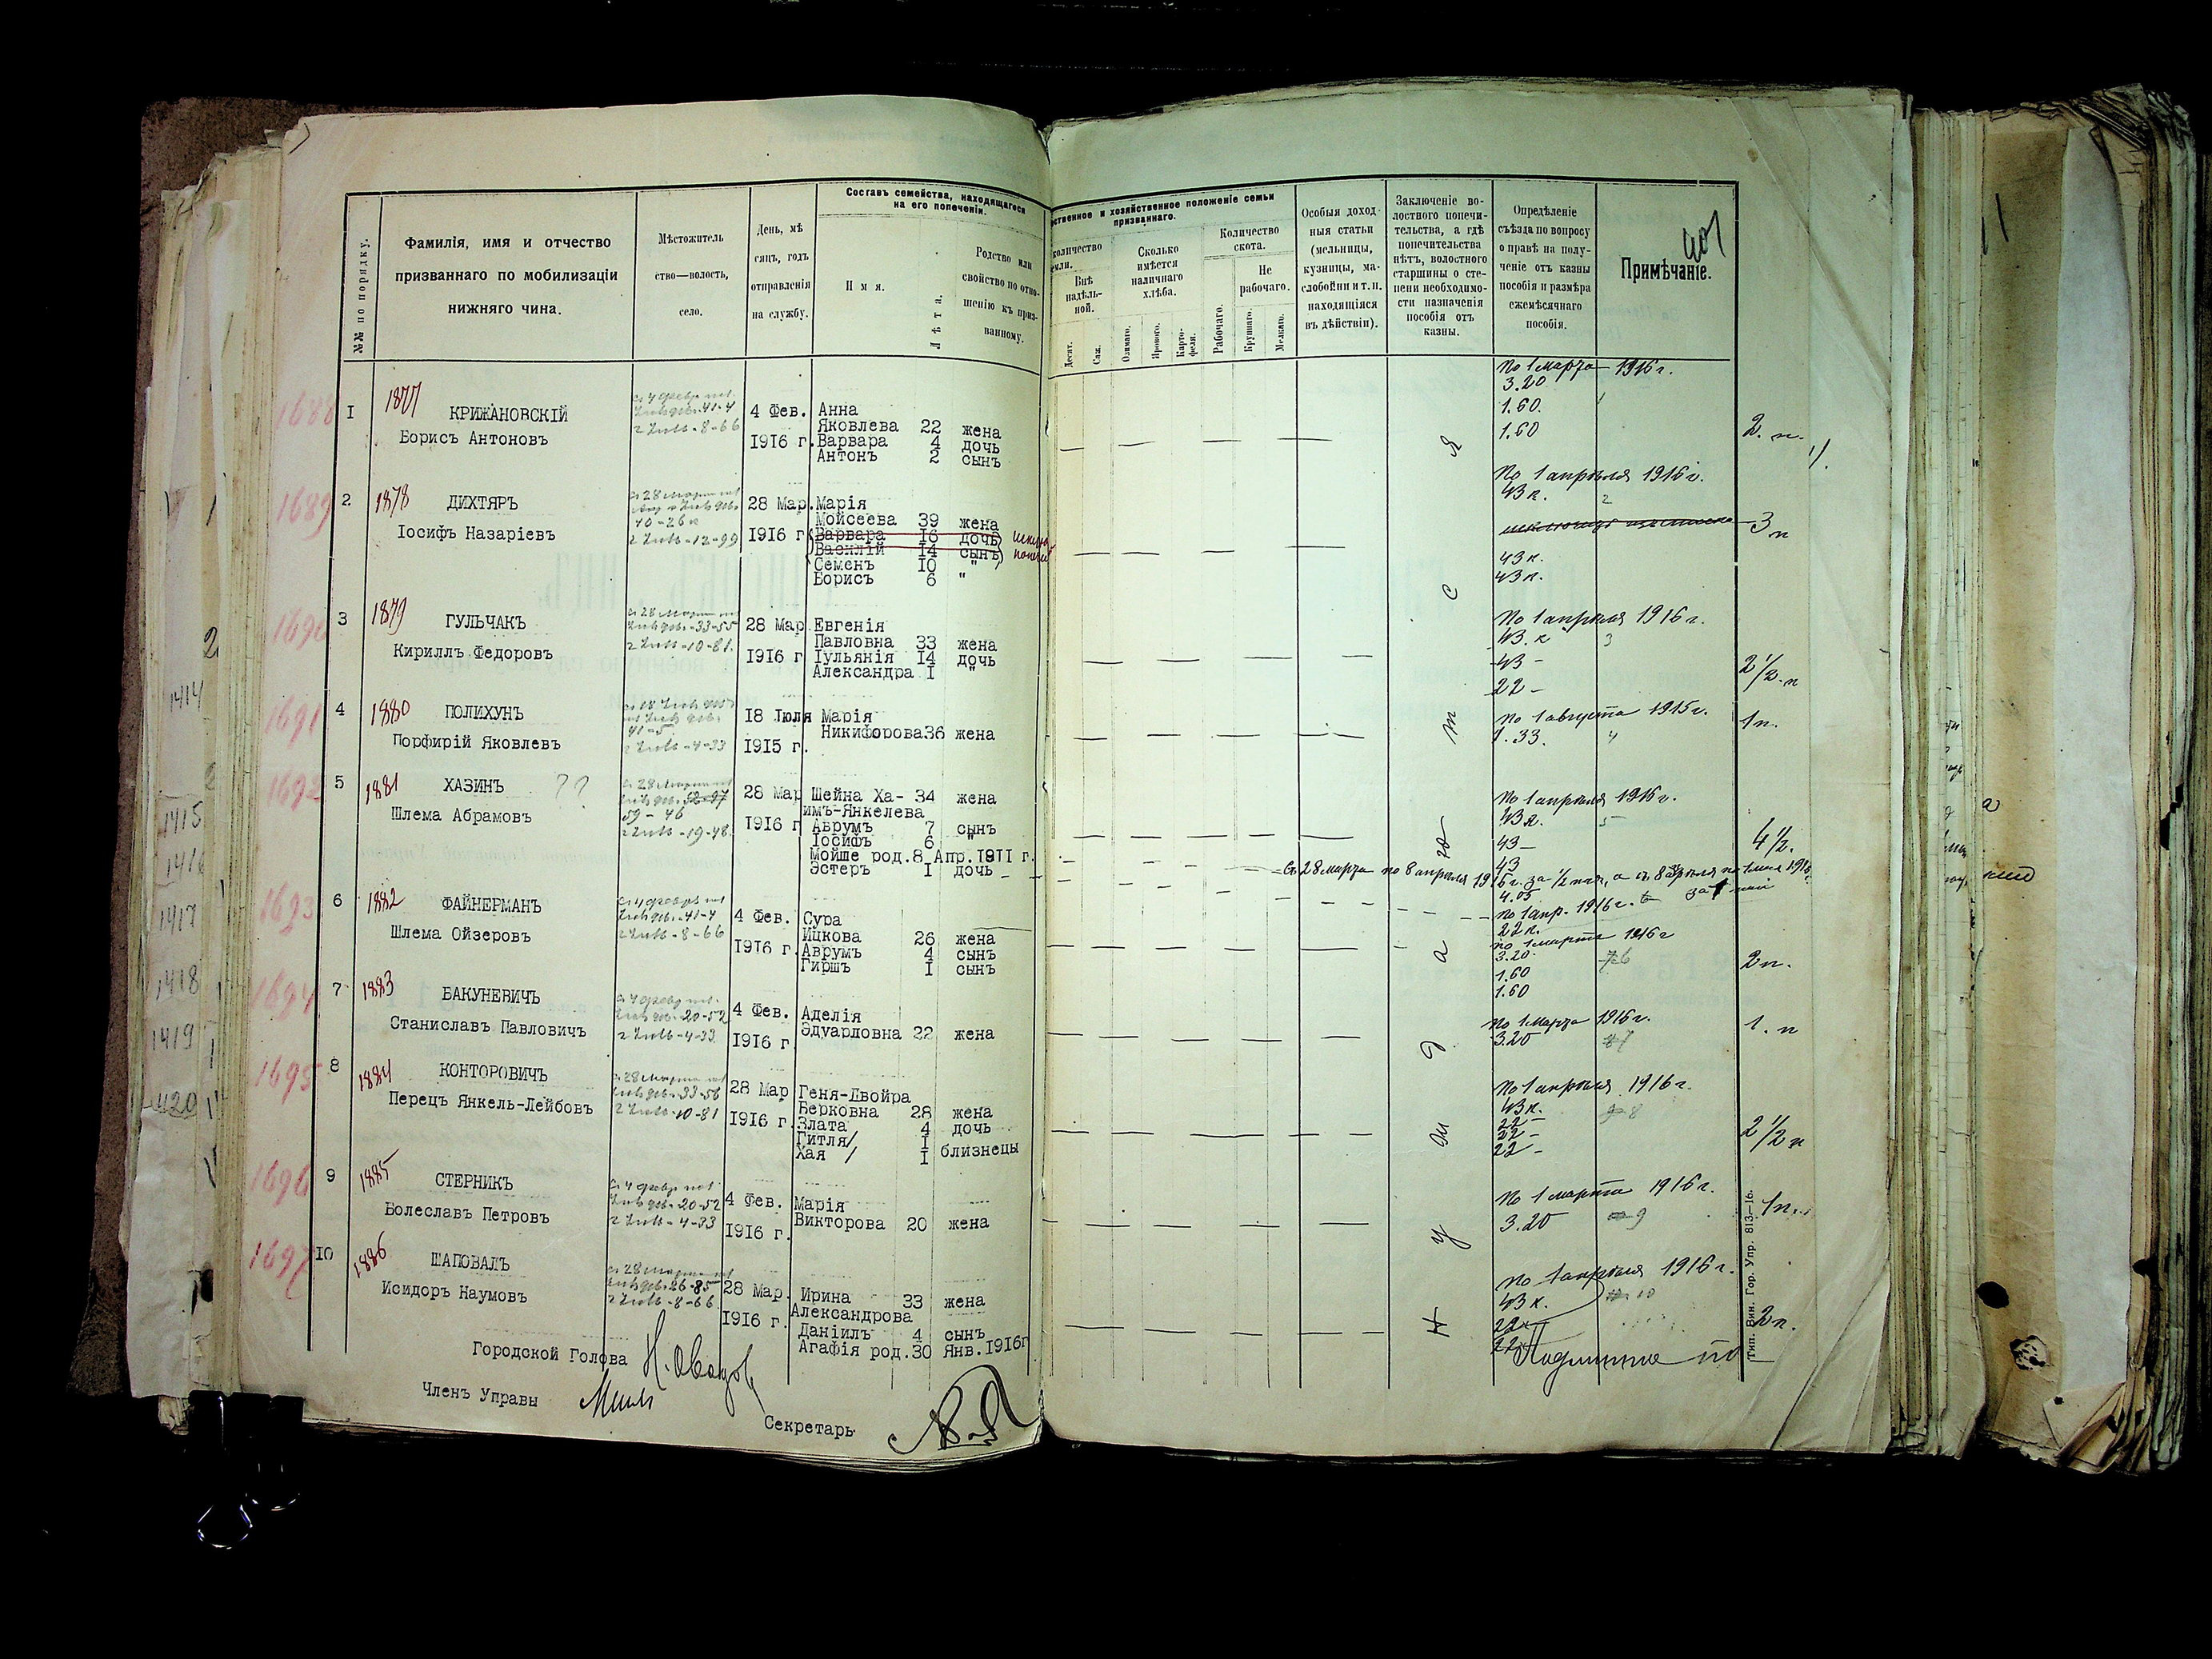 407
№№ по порядку.
Фамилія, имя и отчество
призваннаго по мобилизаціи
нижняго чина.
Мѣстожитель
ство—волость,
село.
День, мѣ
сяцъ, годъ
отправленія
на службу.
Составъ семейства, находящагося
на его попеченіи.
Имя.
Лѣта.
Родство или
свойство по отно-
шенію къ приз-
ванному.
ственное и хозяйственное положеніе семьи
призваннаго.
количество
емли.
Внѣ
надѣль-
ной.
Десят.
Саж.
Сколько
имѣется
наличнаго
хлѣба.
Озимаго.
Ярового.
Карто-
феля.
Количество
скота.
Рабочаго.
Не
рабочаго.
Крупнаго.
Мелкаго.
Особыя доход-
ныя статьи
(мельницы,
кузницы, ма-
слобойни и т. п.
находящіяся
въ дѣйствіи).
Заключеніе во-
лостного попечи-
тельства, а гдѣ
попечительства
нѣтъ, волостного
старшины о сте-
пени необходимо-
сти назначенія
пособія отъ
казны.
Опредѣленіе
съѣзда по вопросу
о правѣ на полу-
ченіе отъ казны
пособія и размѣра
ежемѣсячнаго
пособія.
Примѣчаніе.
нуждаются
1688
1 1877 КРИЖАНОВСКІЙ
Борисъ Антоновъ
41-4
8-66
4 Фев.
1916 г.
Анна
Яковлева 22 жена
Варвара 4 дочь
Антонъ 2 сынъ
По 1 марта 1916 г.
3.20
1.60.
1.60
2. п.
1689
2 1878 ДИХТЯРЪ
Іосифъ Назаріевъ
12-99
28 Мар.
1916 г
Марія
Мойсеева 39 жена
Варвара 16 дочь
Василій 14 сынъ
Семенъ 10 "
Борисъ 6 "
По 1 апрѣля 1916 г.
43 к. 2
43 к.
43 к.
3 п
1690
3 1879 ГУЛЬЧАКЪ
Кириллъ Федоровъ
33-55
10-81.
28 Мар
1916 г
Евгенія
Павловна 33 жена
Іульянія 14 дочь
Александра 1 "
По 1 апрѣля 1916 г.
43. к 3
43 -
22 -
2 1/2. п
1691
4 1880 ПОЛИХУНЪ
Порфирій Яковлевъ
41-5
4-33
18 Іюля
1915 г.
Марія
Никифорова 36 жена
По 1 августа 1915 г.
1.33. 4
1 п.
1692
5 1881 ХАЗИНЪ ??
Шлема Абрамовъ
59-46
19-48.
28 Мар
1916 г
Шейна Ха- 34 жена
имъ-Янкелева
Абрумъ 7 сынъ
Іосифъ 6 "
Мойше род.8 Апр.1911 г.
Эстеръ 1 дочь
По 1 апрѣля 1916 г.
43 к. 5
43 —
43
4 1/2.
съ 28 марта по 8 апрѣля 1916 г. за 1/2 пая, а съ 8 апрѣля по 1 мая 1916
4.05
По 1 апр. 1916 г.
22 к.
1693
6 1882 ФАЙНЕРМАНЪ
Шлема Ойзеровъ
41-4
8-66
4 Фев.
1916 г.
Сура
Ицкова 26 жена
Аврумъ 4 сынъ
Гиршъ 1 сынъ
По 1 марта 1916 г
3.20 6
1.60
1.60
2 п.
1694
7 1883 БАКУНЕВИЧЪ
Станиславъ Павловичъ
20-52
4-33
4 Фев.
1916 г.
Аделія
Эдуардовна 22 жена
По 1 марта 1916 г.
3.20 7
1. п
1695
8 1884 КОНТОРОВИЧЪ
Перецъ Янкель-Лейбовъ
33-56
10-81
28 Мар
1916 г.
Геня-Двойра
Берковна 28 жена
Злата 4 дочь
Гитля/ 1
Хая / 1 близнецы
По 1 апрѣля 1916 г.
43 к. 8
22 —
22 —
22 —
2 1/2 п
1696
9 1885 СТЕРНИКЪ
Болеславъ Петровъ
20-52
4-33
4 Фев.
1916 г.
Марія
Викторова 20 жена
По 1 марта 1916 г.
3.20 9
1 п.
1697
10 1886 ШАПОВАЛЪ
Исидоръ Наумовъ
26-85
8-66
28 Мар.
1916 г.
Ирина 33 жена
Александрова
Даніилъ 4 сынъ
Агафія род.30 Янв.1916г
По 1 апрѣля 1916 г.
43 к. 10
22 к
22 к
2 п.
Городской Голова
Членъ Управы
Секретарь
Тип. Вин. Гор. Упр. 813—16.
1414
1415
1416
1417
1418
1419
1420